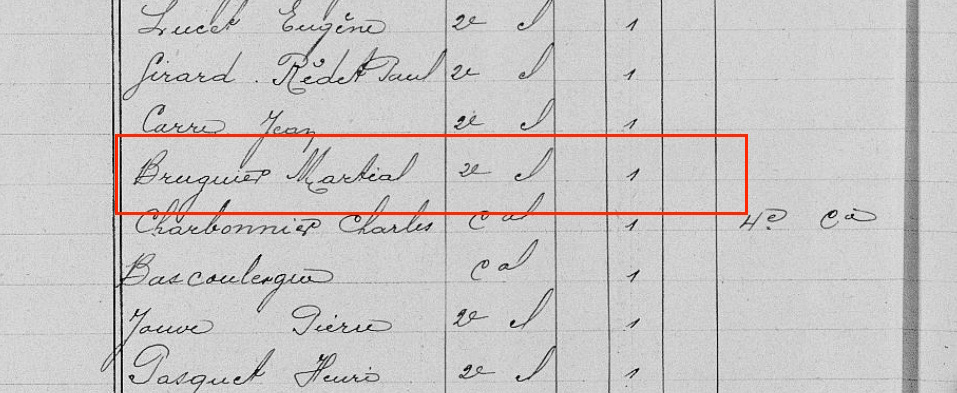 Lucet Eugène 2e cl 1
Girard Rédet Paul 2e cl 1
Carre Jean 2e cl 1
Bruguier Martial 2e cl 1
Charbonnier Charles cal 1 4e Cie
cal 1
Jouve Pierre 2e cl 1
Pasquet Henri 2e cl 1